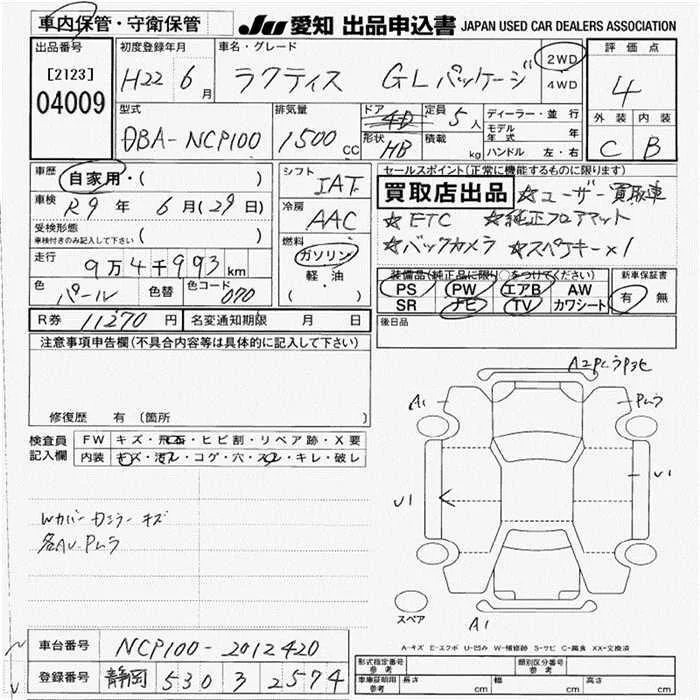 車内保管・守衛保管
JU 愛知 出品申込書 JAPAN USED CAR DEALERS ASSOCIATION
出品番号 [2123] 04009
初度登録年月 H22年 6月
車名・グレード ラクティス GLパッケージ
2WD 4WD
評価点 4
外装 C 内装 B
型式 DBA-NCP100
排気量 1500 CC
ドア 4D 形状 HB
定員 5人 積載 kg
ディーラー・並行
モデル年式 年
ハンドル 左・右
車歴 自家用・( )
車検 R9年 6月(29日)
受検形態 車検付きのみ記入して下さい ( )
走行 9万4千993 km
色 パール 色替 色コード 070
シフト IAT
冷房 AAC
燃料 ガソリン 軽・油 ( )
セールスポイント(正常に機能するものに限ります)
買取店出品 ☆ユーザー買取車
☆ETC ☆純正フロアマット
☆バックカメラ ☆スペアキー×1
装備品(純正品に限り○をつけてください)
PS PW エアB AW
SR ナビ TV カワシート
新車保証書 有 無
後日品
R券 11270円 名変通知期限 月 日
注意事項申告欄(不具合内容等は具体的に記入して下さい)
修復歴 有 (箇所 )
検査員記入欄
FW キズ・飛石・ヒビ割・リペア跡・X要
内装 キズ・汚レ・コゲ・穴・スレ・キレ・破レ
キズ
各AU.Pムラ
A1 Pムラ
U1 U1
A1
スペア
A-キズ E-エクボ U-凹み W-補修跡 S-サビ C-腐食 XX-交換済
車台番号 NCP100-2012420
登録番号 静岡 530 ス 2574
形式指定番号 参考 類別区分番号 参考
車庫証明用 参考 長さ cm 幅 cm 高さ cm